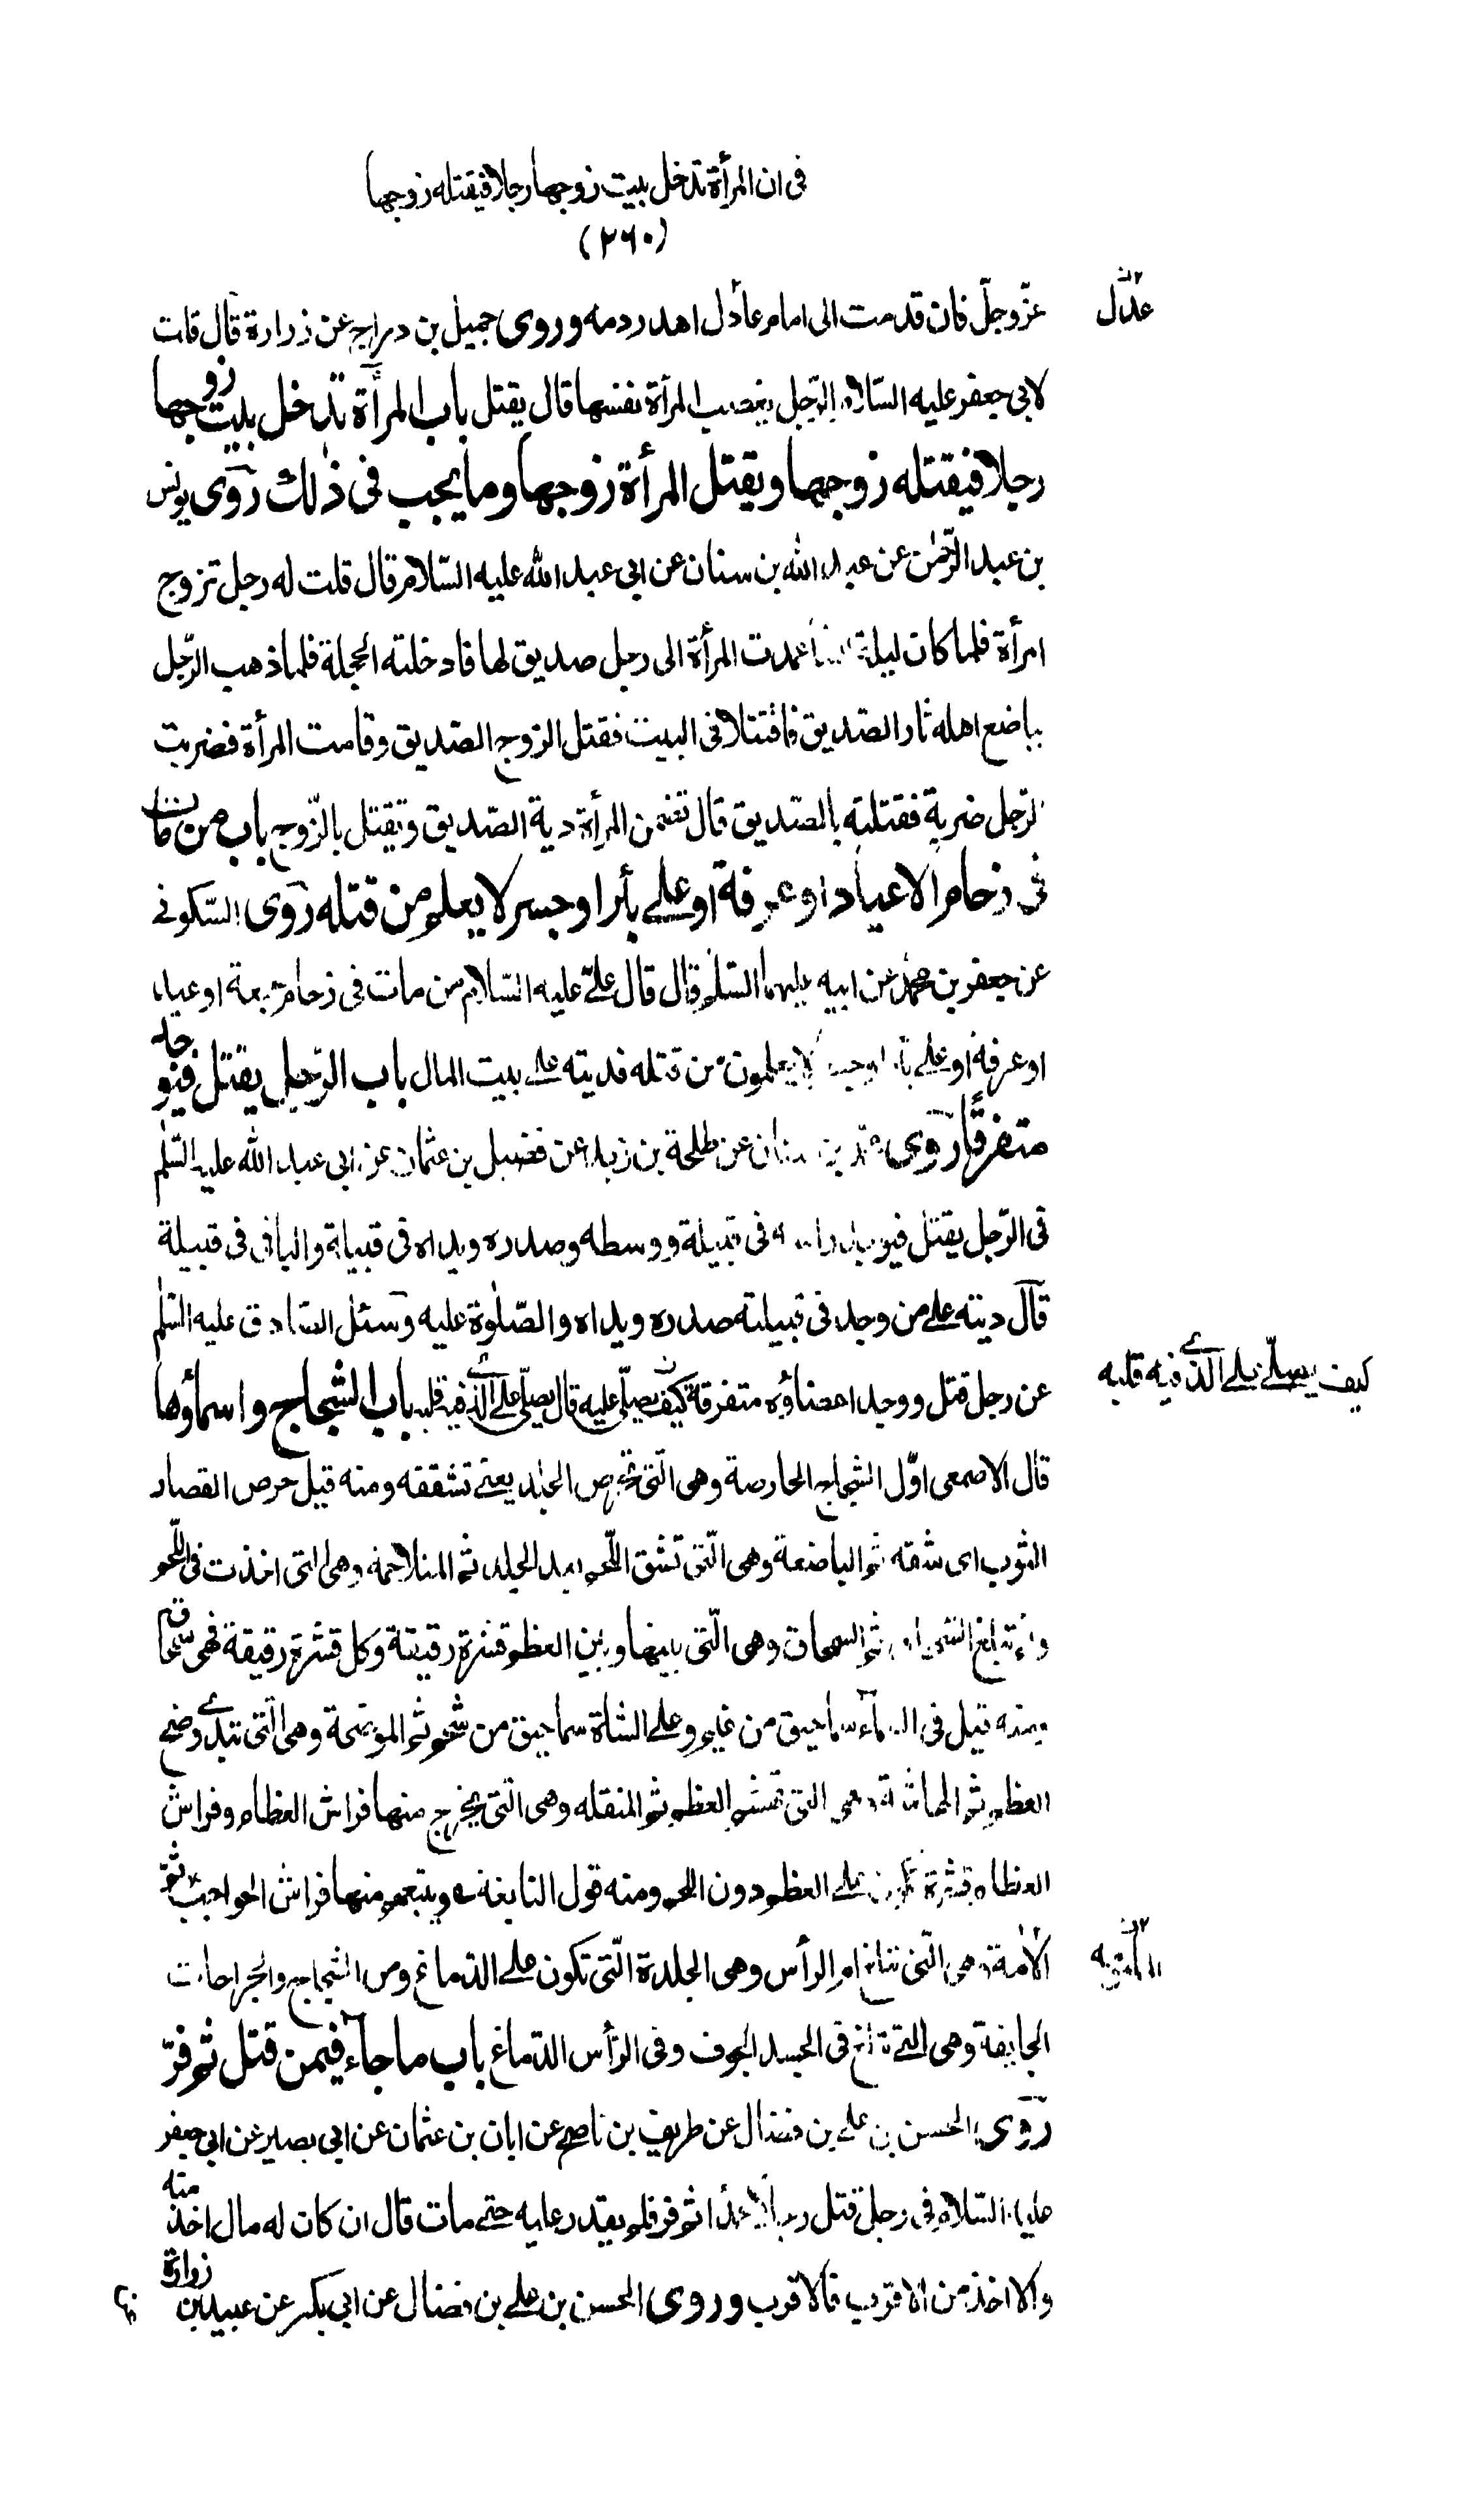 فى ان المرأة تدخل بيت زوجها رجلا فيقتله زوجها
(٢٦٠)
عدل
عزّ وجلّ فان قدمت الى امام عادل اهدر دمه وروى جميل بن دراج عن زرارة قال قلت
لابى جعفر عليه السّلام الرّجل يغصب المرأة نفسها قال يقتل باب المرأة تدخل بيت زوجها
رجلا فيقتله زوجها ويقتل المرأة زوجها وما يجب فى ذلك روى يونس
بن عبد الرّحمن عن عبد الله بن سنان عن ابى عبد الله عليه السّلام قال قلت له رجل تزوج
امرأة فلما كان ليلة عمدت المرأة الى رجل صديق لها فادخلته الحجلة فلما ذهب الرّجل
يباضع اهله ثار الصّديق فاقتتلا فى البيت فقتل الزوج الصّديق وقامت المرأة فضربت
الرّجل ضربة فقتلته بالصّديق قال تضمن المرأة دية الصّديق وتقتل بالزّوج باب من مات
فى زحام الاعياد او عرفة او على بئر او جسر لا يعلم من قتله روى السّكونى
عن جعفر بن محمد عن ابيه عليهما السّلم قال قال علىّ عليه السّلام من مات فى زحام جمعة او عيد
او عرفة او على بئر او جسر لا يعلمون من قتله فديته على بيت المال باب الرّجل يقتل فيوجد
متفرقًا روى محمد بن سنان عن طلحة بن زيد عن فضيل بن عثمان عن ابى عبد الله عليه السّلم
فى الرّجل يقتل فيوجد راسه فى قبيلة ووسطه وصدره ويداه فى قبيلة والباقى فى قبيلة
قال ديته على من وجد فى قبيلته صدره ويداه والصّلوة عليه وسئل الصّادق عليه السّلم
كيف يصلّى على الّذى فيه قلبه
عن رجل قتل ووجد اعضاؤه متفرقة كيف يصلّى عليه قال يصلّى على الّذى فيه قلبه باب الشجاج واسماؤها
قال الاصمعى اوّل الشجاج الحارصة وهى الّتى تحرص الجلد يعنى تشققه ومنه قيل حرص القصار
الثوب اى شقه ثم الباضعة وهى الّتى تشق اللّحم بعد الجلد ثم المتلاحمة وهى الّتى اخذت فى اللّحم
ولم تبلغ السمحاق ثم السمحاق وهى الّتى بينها وبين العظم قشرة رقيقة وكل قشرة رقيقة فهى سمحاق
ومنه قيل فى السمآء سماحيق من غيم وعلى الشاة سماحيق من شحم ثم الموضحة وهى الّتى تبدى وضح
العظم ثم الهاشمة وهى الّتى تهشم العظم ثم المنقلة وهى الّتى يخرج منها فراش العظام وفراش
العظام قشرة تكون على العظم دون اللحم ومنه قول النابغة ويتبعهم منها فراش الحواجب ثم
الآمّة وهى الّتى تبلغ ام الرأس وهى الجلدة الّتى تكون على الدّماغ ومن الشجاج والجراحات
الجايفة وهى الّتى تبلغ فى الجسد الجوف وفى الرّأس الدّماغ باب ما جآء فيمن قتل ثم فرّ
روى الحسن بن على بن فضال عن ظريف بن ناصح عن ابان بن عثمان عن ابى بصير عن ابى جعفر
عليه السّلام فى رجل قتل رجلا عمدا ثم فرّ فلم يقدر عليه حتى مات قال ان كان له مال اخذ منه
والا اخذ من الاقرب فالاقرب وروى الحسن بن على بن فضال عن ابى بكر عن عبيد بن زرارة